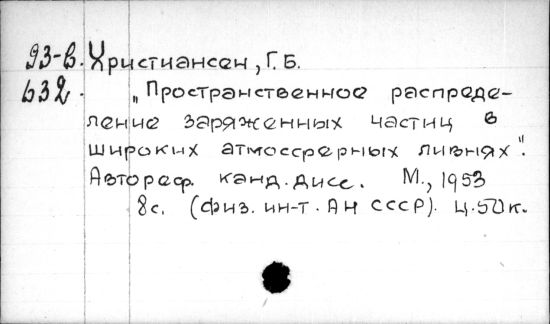 93-в. Христиансен, Г.Б.
632. „Пространственное распреде-
ление заряженных частиц в
широких атмосферных ливнях".
Автореф. канд. дисс. М., 1953
8с. (Физ. ин-т. АН СССР). Ц. 50 к.